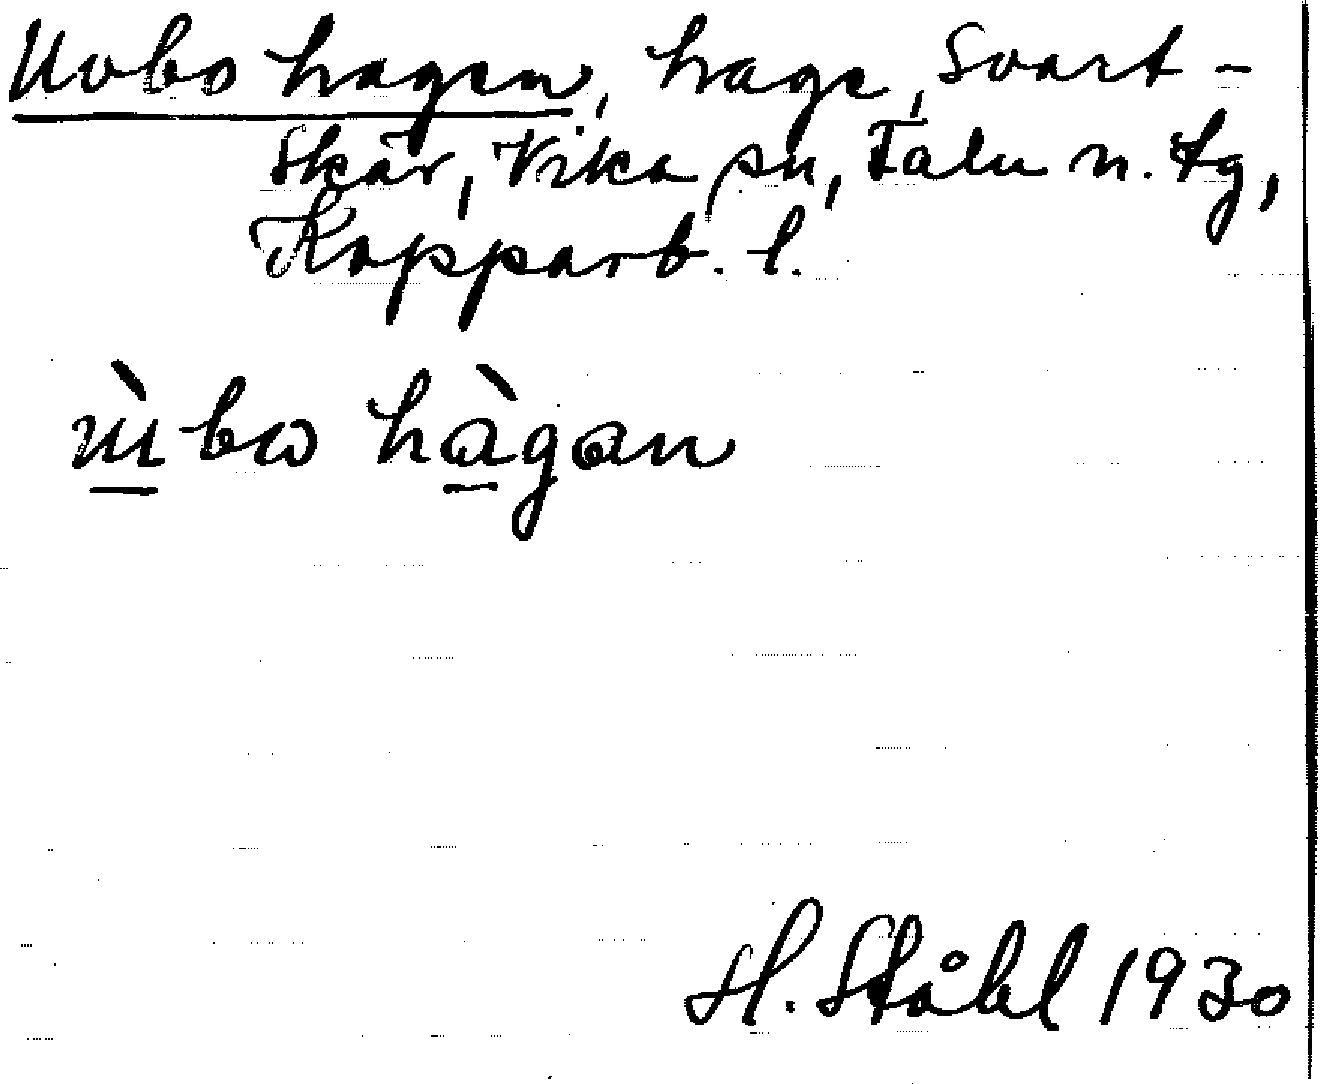 Uvbo hagen, hage, Svart-
skär, Vika sn, Falu n. tg,
Kopparb. l.
ɯ̀bω hàgan
H. Ståhl 1930